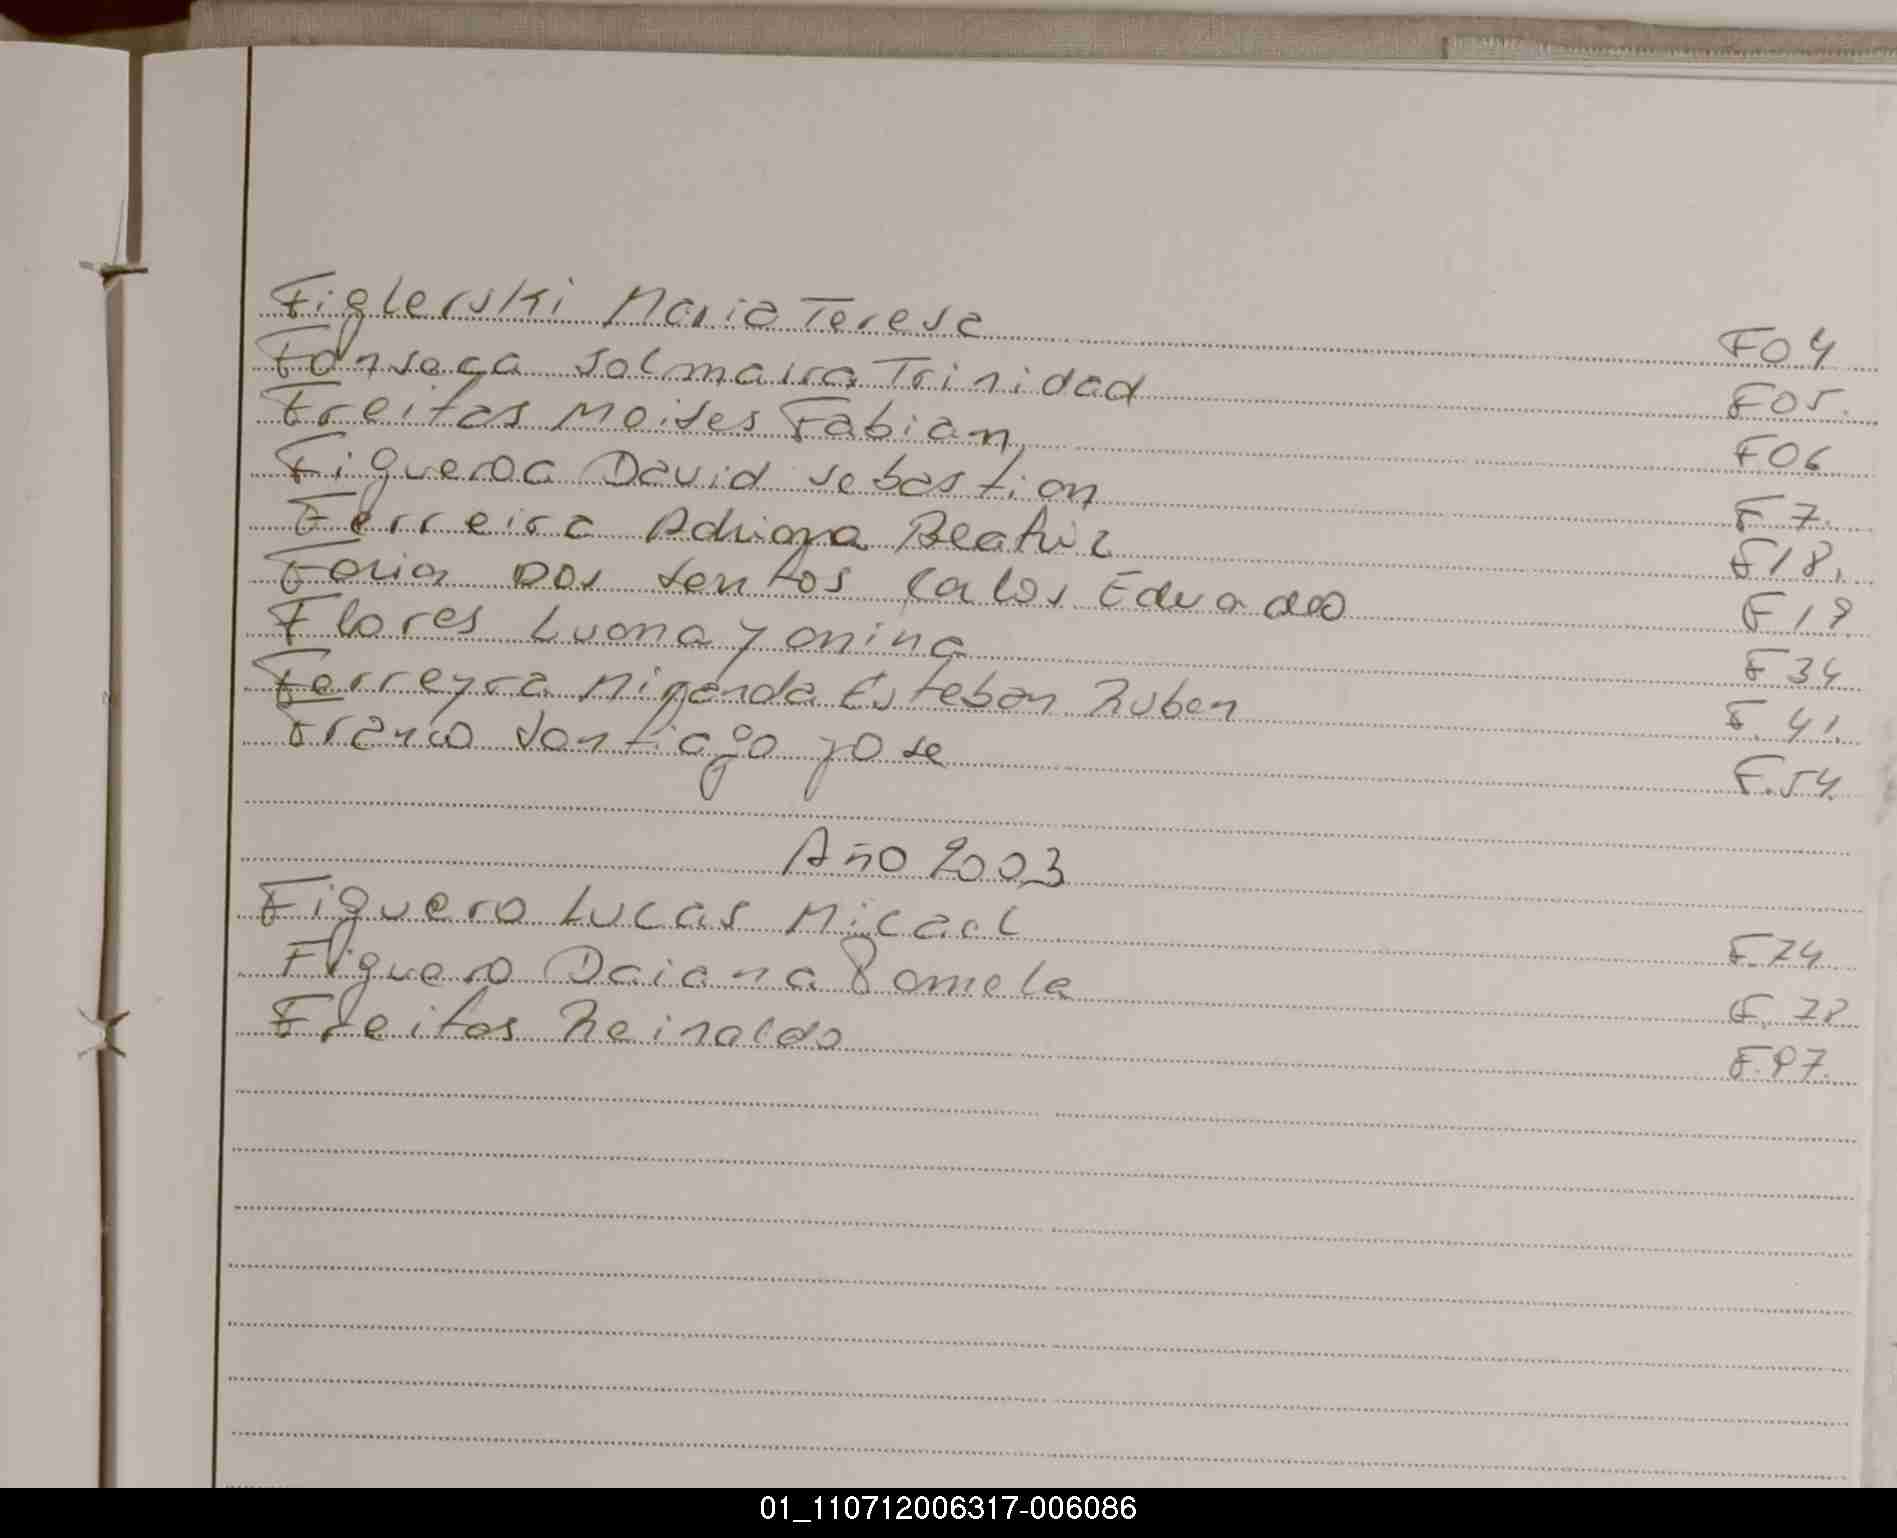 Figlerski Maria Teresa F04
Fonseca Solmaira Trinidad F05.
Freitas Moises Fabian F06
Figueroa David Sebastian F7.
Ferreira Adriana Beatriz F18.
Faria Dos Santos Carlos Eduardo F19
Flores Luana Yanina F34
Ferreyra Miranda Esteban Ruben F.41.
Franco Santiago Jose F.54.
Año 2003
Figuero Lucas Micael F.74
Figuero Daiana Pamela F.78
Freitas Reinaldo F.97.